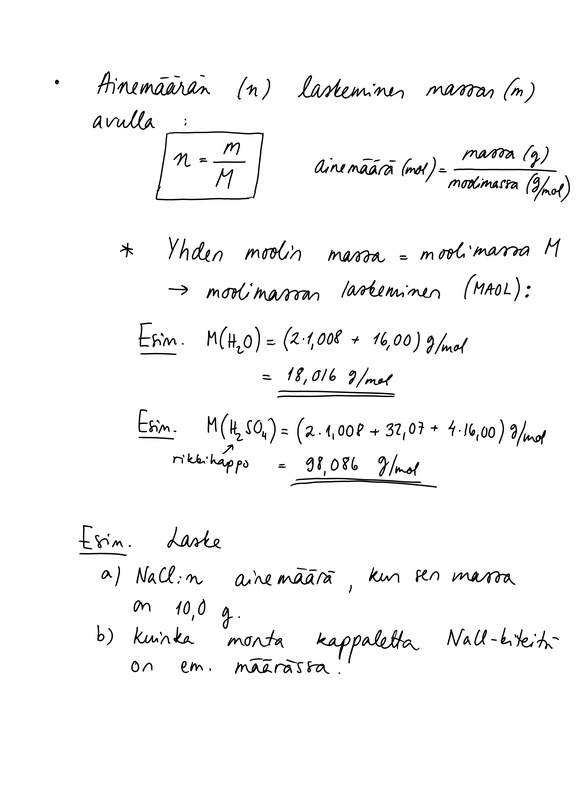 • Ainemäärän (n) laskeminen massan (m)
avulla :
n = m/M ainemäärä (mol) = massa (g) / moolimassa (g/mol)
* Yhden moolin massa = moolimassa M
→ moolimassan laskeminen (MAOL):
Esim. M(H₂O) = (2·1,008 + 16,00) g/mol
= 18,016 g/mol
Esim. M(H₂SO₄) = (2·1,008 + 32,07 + 4·16,00) g/mol
rikkihappo = 98,086 g/mol
Esim. Laske
a) NaCl:n ainemäärä, kun sen massa
on 10,0 g.
b) kuinka monta kappaletta NaCl-kiteitä
on em. määrässä.